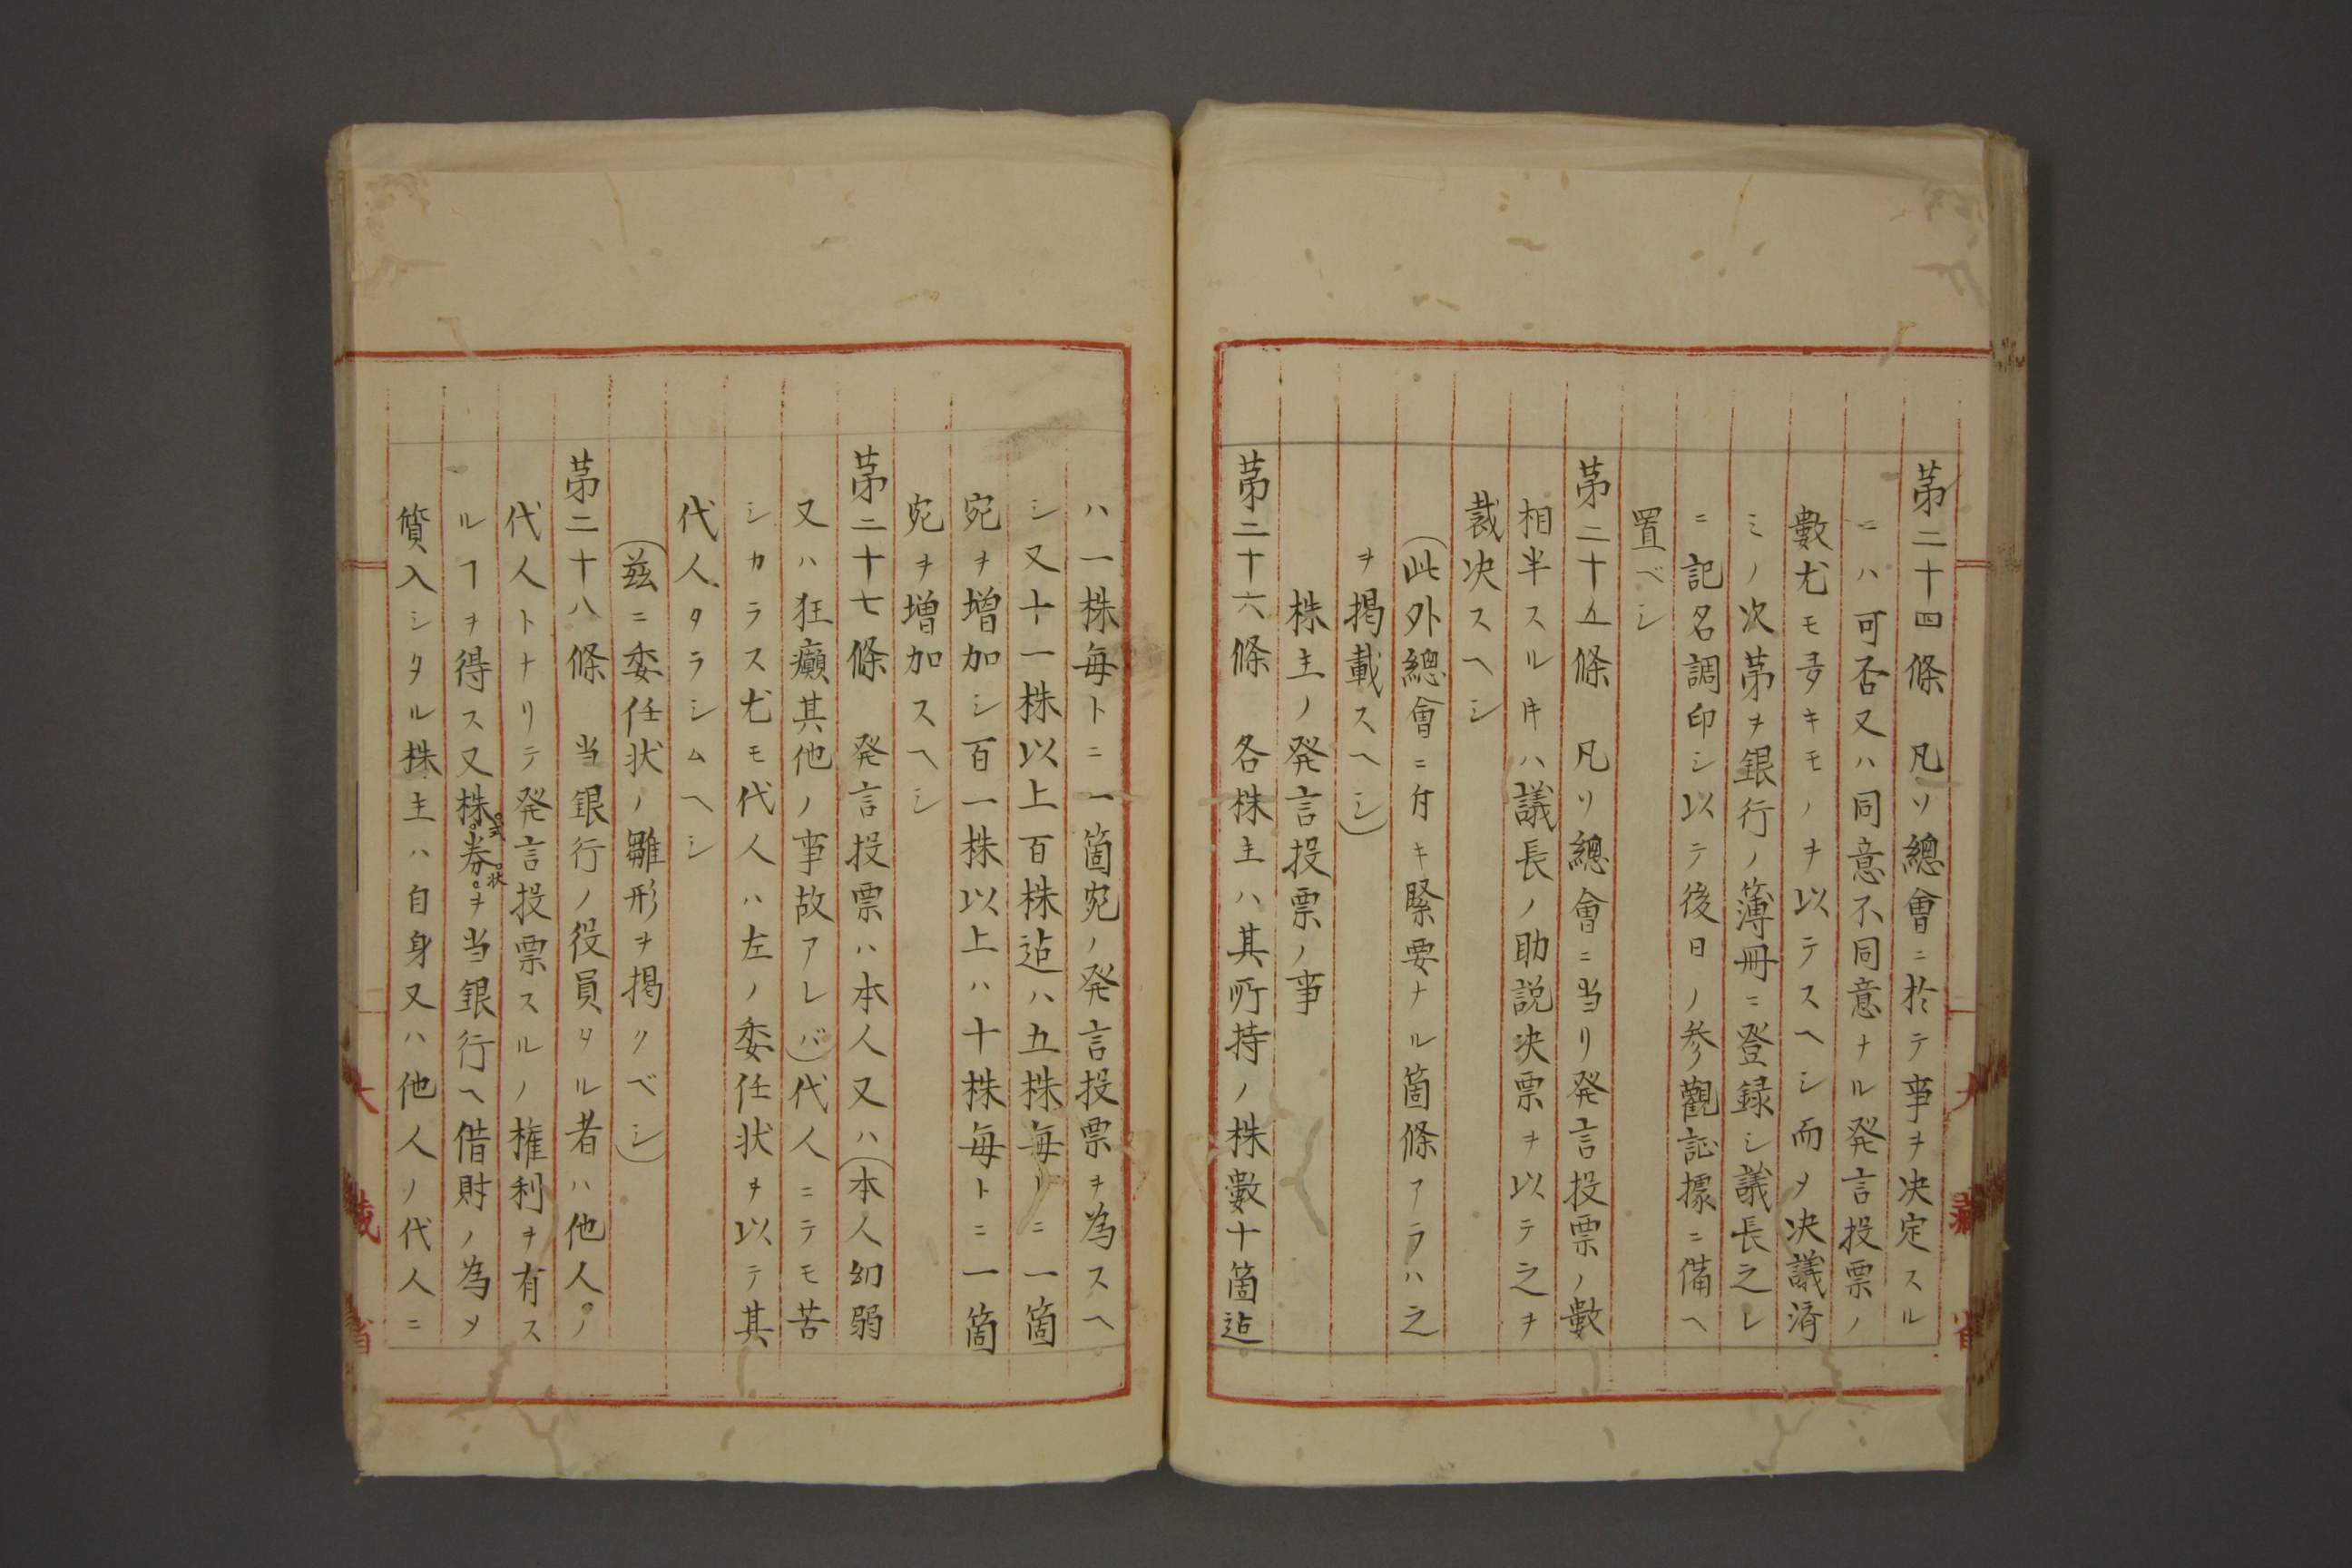 第二十四條　凡ソ總會ニ於テ事ヲ决定スル
ニハ可否又ハ同意不同意ナル発言投票ノ
數尤モ多キモノヲ以テスヘシ而〆决議済
ミノ次第ヲ銀行ノ簿冊ニ登録シ議長之レ
ニ記名調印シ以テ後日ノ参觀証據ニ備ヘ
置ベシ
第二十五條　凡リ總會ニ当リ発言投票ノ數
相半スルキハ議長ノ助説决票ヲ以テ之ヲ
裁决スヘシ
（此外總會ニ付キ緊要ナル箇條アラハ之
ヲ掲載スヘシ）
株主ノ発言投票ノ事
第二十六條　各株主ハ其所持ノ株數十箇迠
ハ一株毎トニ一箇宛ノ発言投票ヲ為スヘ
シ又十一株以上百株迠ハ五株毎トニ一箇
宛ヲ増加シ百一株以上ハ十株毎トニ一箇
宛ヲ増加スヘシ
第二十七條　発言投票ハ本人又ハ（本人幻弱
又ハ狂癲其他ノ事故アレバ）代人ニテモ苦
シカラス尤モ代人ハ左ノ委任状ヲ以テ其
代人タラシムヘシ
（茲ニ委任状ノ雛形ヲ掲クベシ）
第二十八條　当銀行ノ役員タル者ハ他人ノ
代人トナリテ発言投票スルノ権利ヲ有ス
ルヿヲ得ス又株式券状ヲ当銀行ヘ借財ノ為〆
質入シタル株主ハ自身又ハ他人ノ代人ニ
大藏省
大藏省